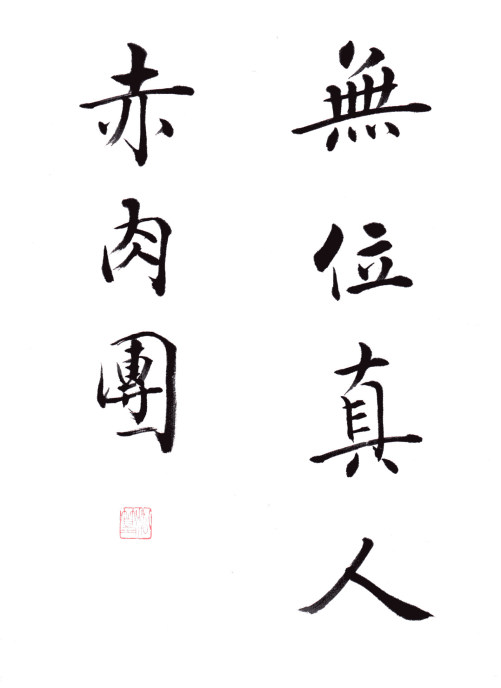 無位真人
赤肉團